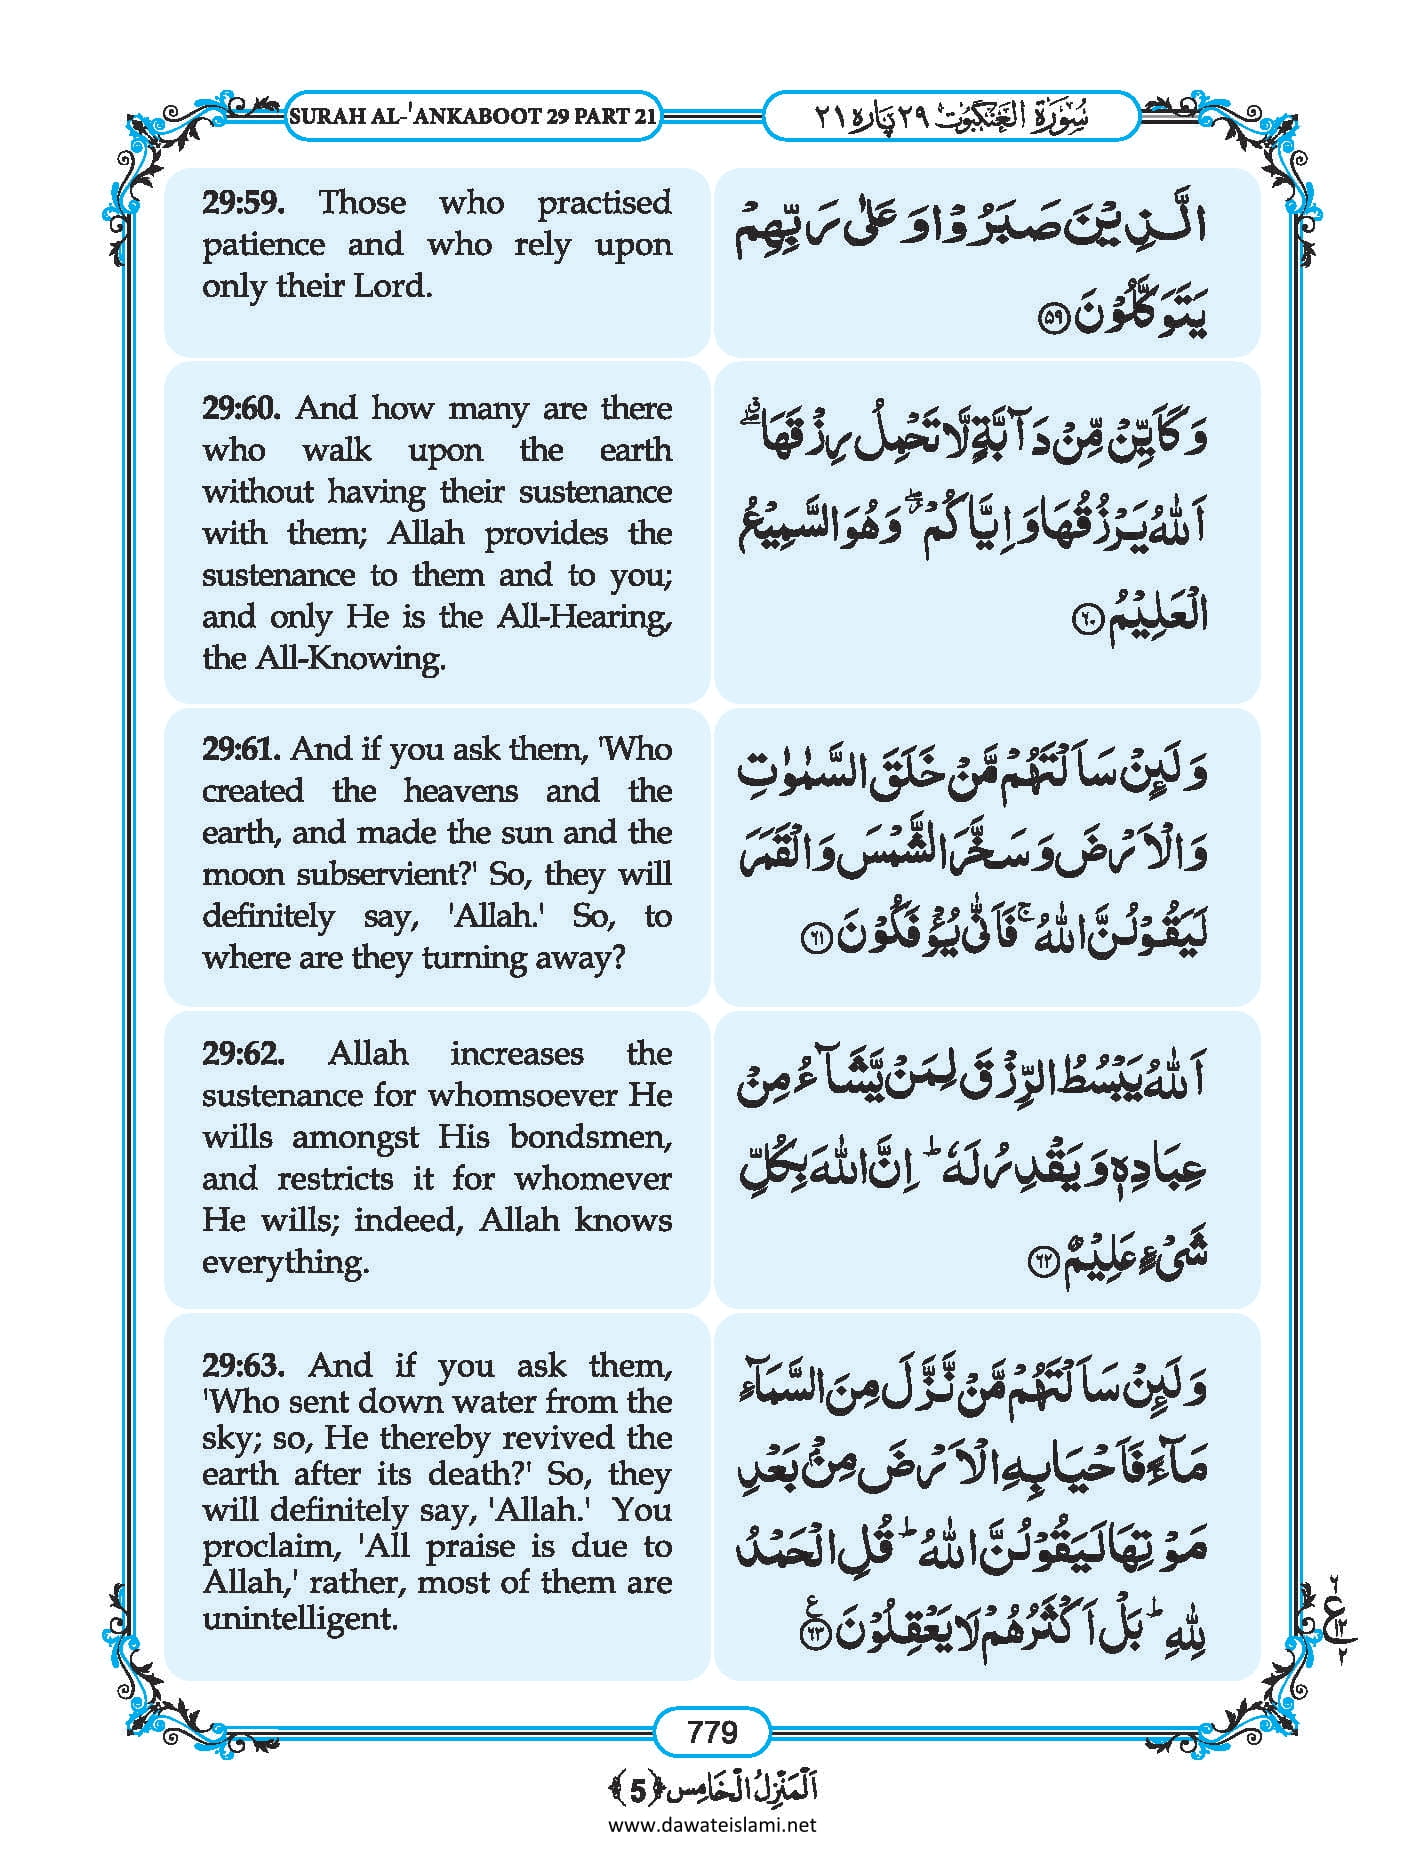 SURAH AL-'ANKABOOT 29 PART 21
سُوْرَۃُ الْعَنْكَبُوْت ٢٩ پارہ ٢١
29:59. Those who practised
patience and who rely upon
only their Lord.
الَّذِيْنَ صَبَرُوْا وَ عَلٰى رَبِّهِمْ
يَتَوَكَّلُوْنَ ۝۵۹
29:60. And how many are there
who walk upon the earth
without having their sustenance
with them; Allah provides the
sustenance to them and to you;
and only He is the All-Hearing,
the All-Knowing.
وَ كَاَيِّنْ مِّنْ دَآبَّةٍ لَّا تَحْمِلُ رِزْقَهَا ۗۖ
اَللّٰهُ يَرْزُقُهَا وَ اِيَّاكُمْ ۖ وَ هُوَ السَّمِيْعُ
الْعَلِيْمُ ۝۶۰
29:61. And if you ask them, 'Who
created the heavens and the
earth, and made the sun and the
moon subservient?' So, they will
definitely say, 'Allah.' So, to
where are they turning away?
وَ لَىِٕنْ سَاَلْتَهُمْ مَّنْ خَلَقَ السَّمٰوٰتِ
وَ الْاَرْضَ وَ سَخَّرَ الشَّمْسَ وَ الْقَمَرَ
لَيَقُوْلُنَّ اللّٰهُ ۚ فَاَنّٰى يُؤْفَكُوْنَ ۝۶۱
29:62. Allah increases the
sustenance for whomsoever He
wills amongst His bondsmen,
and restricts it for whomever
He wills; indeed, Allah knows
everything.
اَللّٰهُ يَبْسُطُ الرِّزْقَ لِمَنْ يَّشَآءُ مِنْ
عِبَادِهٖ وَ يَقْدِرُ لَهٗ ؕ اِنَّ اللّٰهَ بِكُلِّ
شَیْءٍ عَلِيْمٌ ۝۶۲
29:63. And if you ask them,
'Who sent down water from the
sky; so, He thereby revived the
earth after its death?' So, they
will definitely say, 'Allah.' You
proclaim, 'All praise is due to
Allah,' rather, most of them are
unintelligent.
وَ لَىِٕنْ سَاَلْتَهُمْ مَّنْ نَّزَّلَ مِنَ السَّمَآءِ
مَآءً فَاَحْيَا بِهِ الْاَرْضَ مِنْۢ بَعْدِ
مَوْتِهَا لَيَقُوْلُنَّ اللّٰهُ ؕ قُلِ الْحَمْدُ
لِلّٰهِ ؕ بَلْ اَكْثَرُهُمْ لَا يَعْقِلُوْنَ ۝۶۳ ع
٦
ع
١٢
٢
779
اَلْمَنْزِلُ الْخَامِس ﴿5﴾
www.dawateislami.net